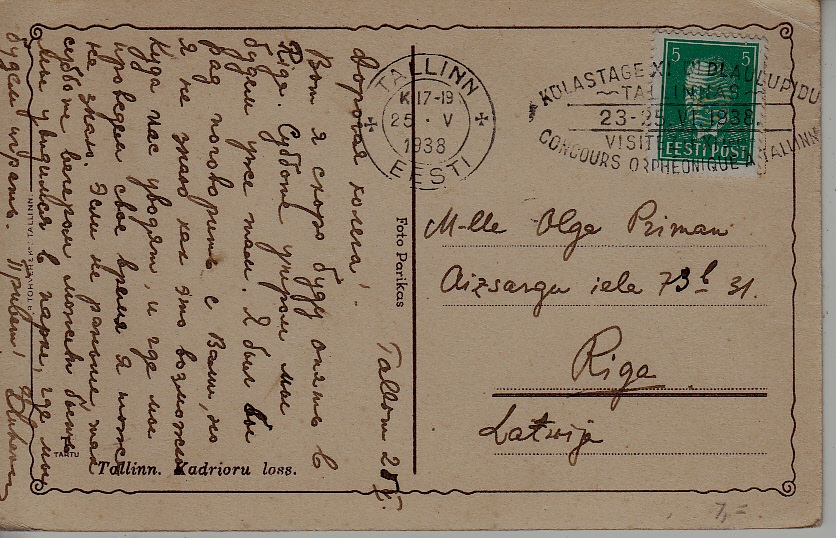 Tallinn 25 V.
Дорогая колега!
Вот я скоро буду опять в
Riga. Субботу утром мы
будем уже там. Я был бы
рад поговорить с Вами, но
я не знаю как это возможно
Куда нас уводят, и где мы
проведем свое время я тоже
не знаю. Если не раньше так
субботе вечером может быть
мы увидимся в парке, где мы
будем играть. Привет!
Foto Parikas
TARTU
Tallinn. Kadrioru loss.
TALLINN
K 17-19
25 · V
1938
EESTI
KÜLASTAGE XI LAULUPIDU
TALLINNAS
23-25.VI.1938
VISITEZ
CONCOURS ORPHEONIQUE A TALLINN
5 5
EESTI POST
M-lle Olga Priman
Aizsargu iela 73b 31.
Riga
Latwija
7,=